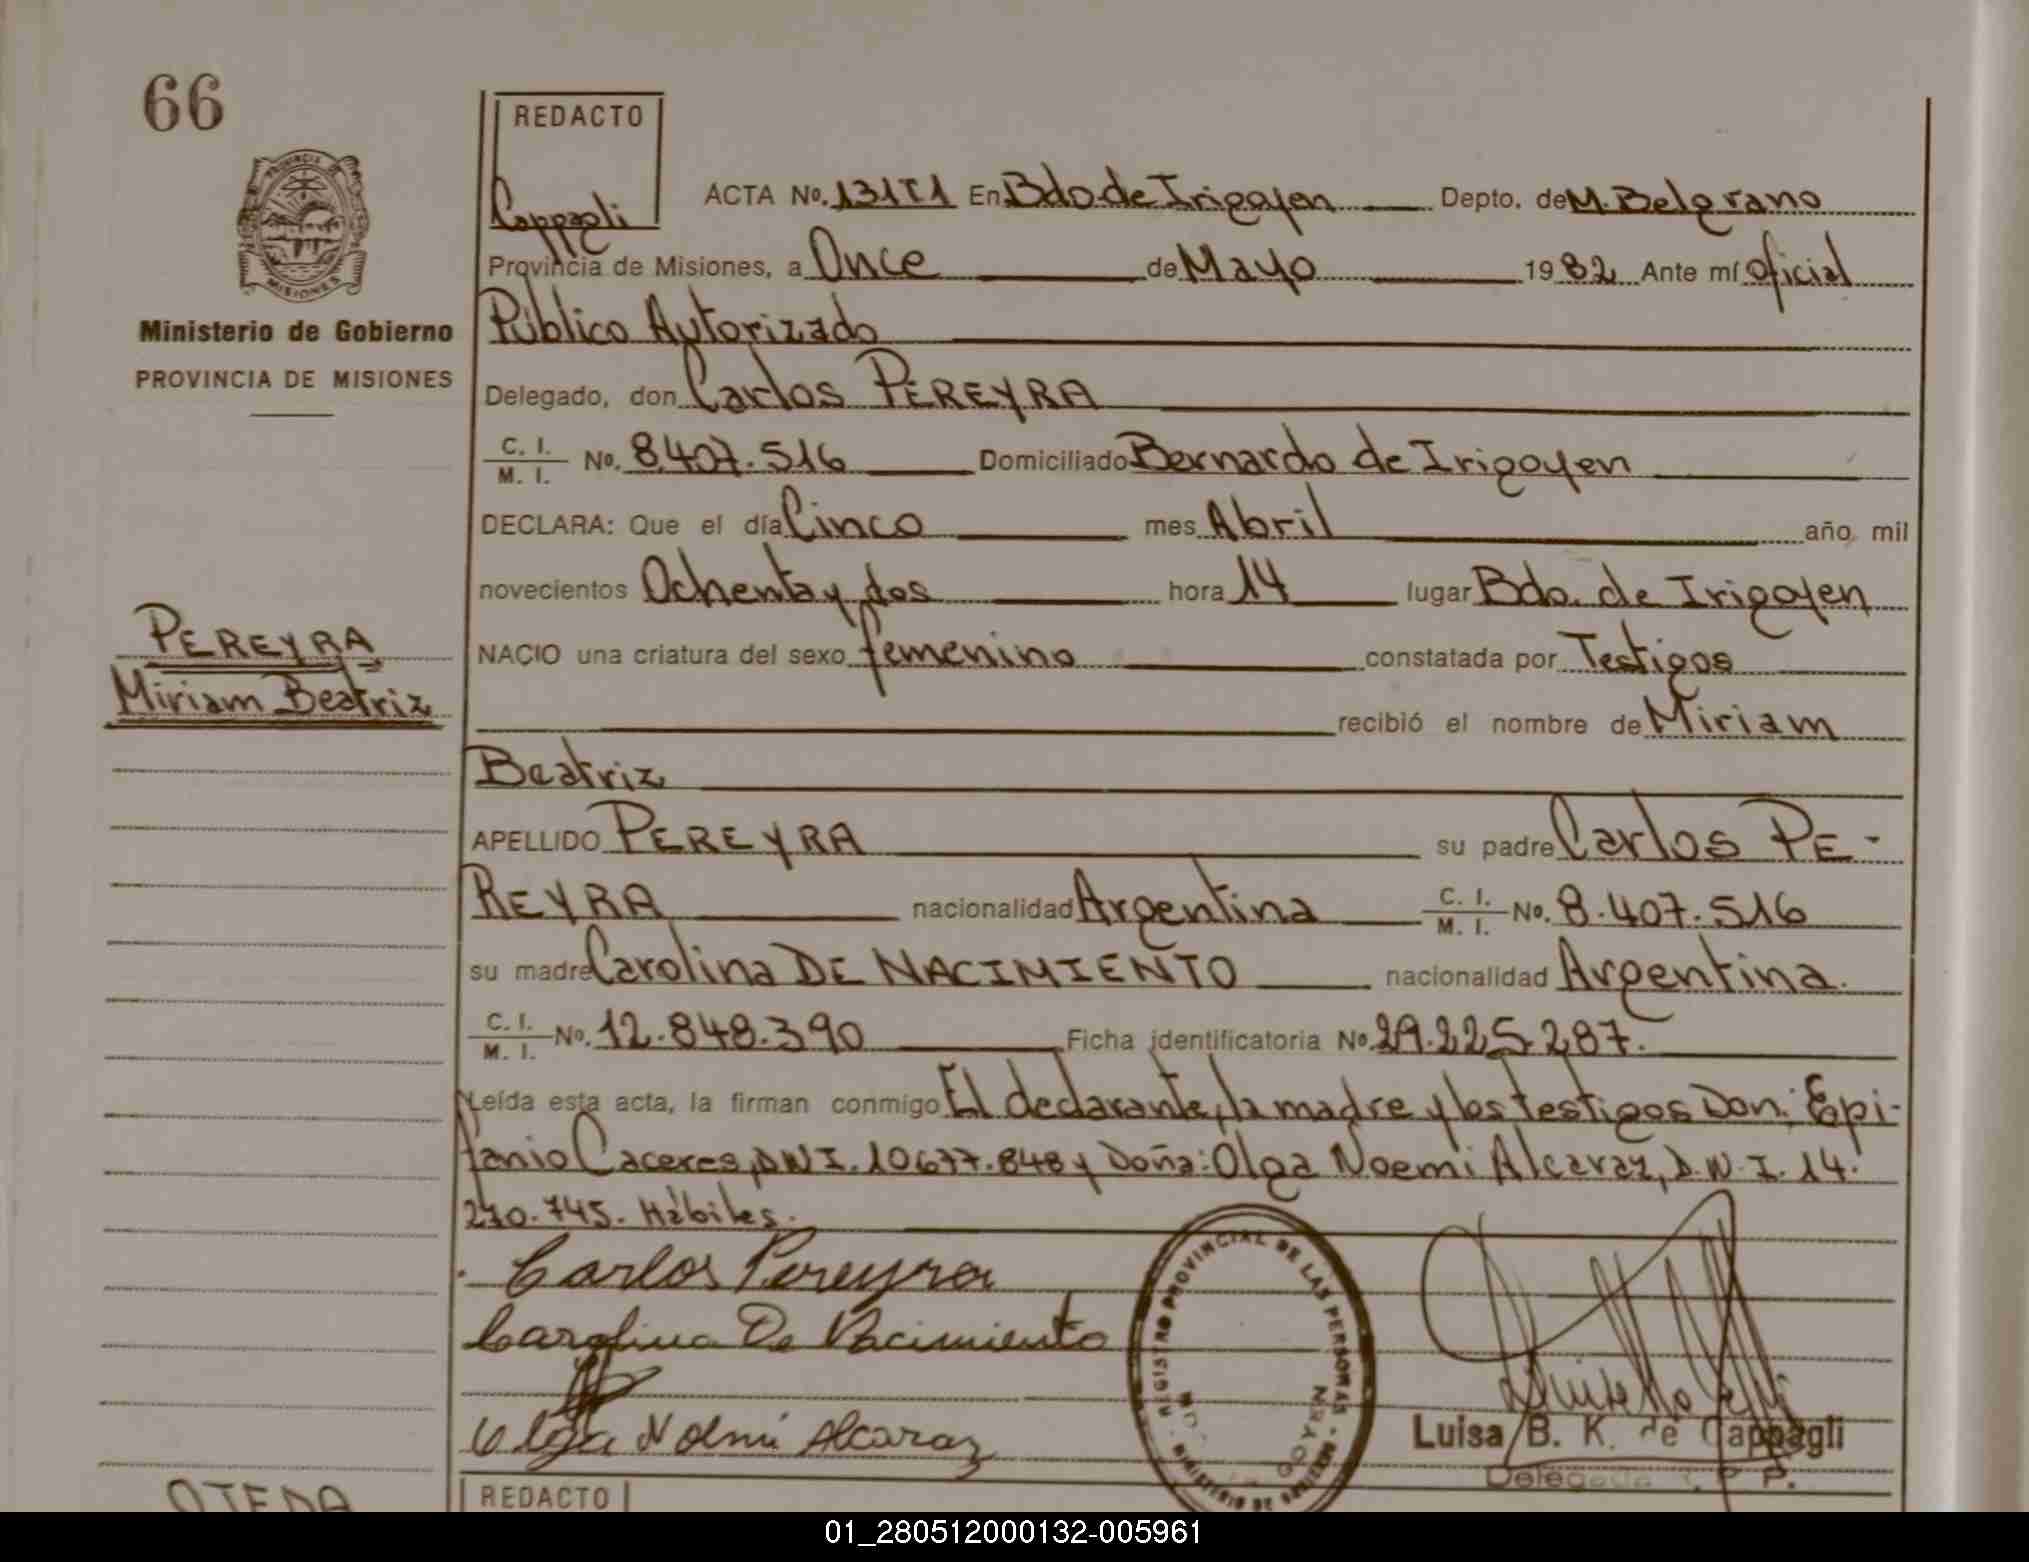 66
REDACTO
Cappagli
PROVINCIA DE
MISIONES
Ministerio de Gobierno
PROVINCIA DE MISIONES
PEREYRA
Miriam Beatriz
ACTA No. 131T1 En Bdo. de Irigoyen Depto. de M. Belgrano
Provincia de Misiones, a Once de Mayo 1982 Ante mí oficial
Público Autorizado
Delegado, don Carlos PEREYRA
C. I.
M. I. No. 8.407.516 Domiciliado Bernardo de Irigoyen
DECLARA: Que el día Cinco mes Abril año mil
novecientos Ochenta y dos hora 14 lugar Bdo. de Irigoyen
NACIO una criatura del sexo femenino constatada por Testigos
recibió el nombre de Miriam
Beatriz
APELLIDO PEREYRA su padre Carlos PE-
REYRA nacionalidad Argentina C. I. M. I. No. 8.407.516
su madre Carolina DE NACIMIENTO nacionalidad Argentina.
C. I. M. I. No. 12.848.390 Ficha identificatoria No. 29.225.287.
Leída esta acta, la firman conmigo El declarante, la madre y los testigos Don: Epi-
fanio Caceres, D.N.I. 10677.848 y Doña: Olga Noemi Alcaraz, D.N.I. 14.
270.745. Hábiles.
Carlos Pereyra
Carolina De Nacimiento
Olga Noemi Alcaraz
REGISTRO PROVINCIAL DE LAS PERSONAS
MINISTERIO DE
GOYEN
Luisa B. K. de Cappagli
Delegada
OJEDA
REDACTO
01_280512000132-005961